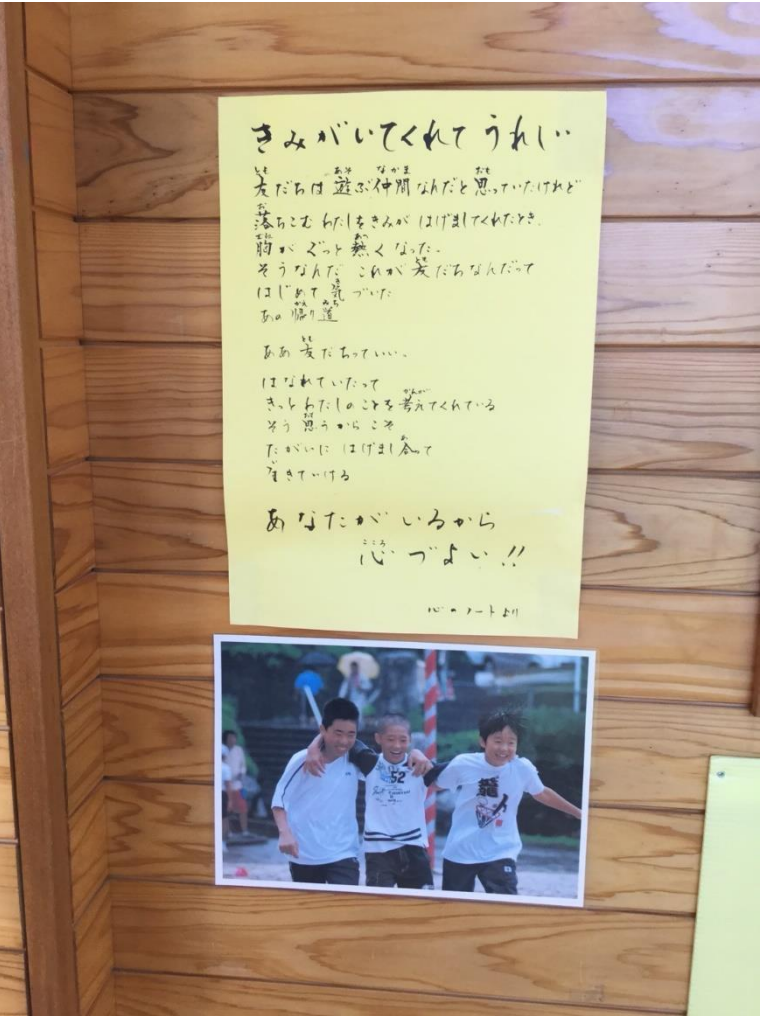 きみがいてくれて うれしい
友だちは 遊ぶ仲間なんだと 思っていたけれど
落ちこむ わたしをきみが はげましてくれたとき、
胸が ぐっと 熱く なった。
そうなんだ これが 友だちなんだって
はじめて 気づいた
あの 帰り道
ああ 友だちっていい。
はなれていたって
きっと わたしのことを 考えてくれている
そう 思うからこそ
たがいに はげまし合って
生きていける
あなたが いるから
心づよい!!
心のノートより
52
籠人